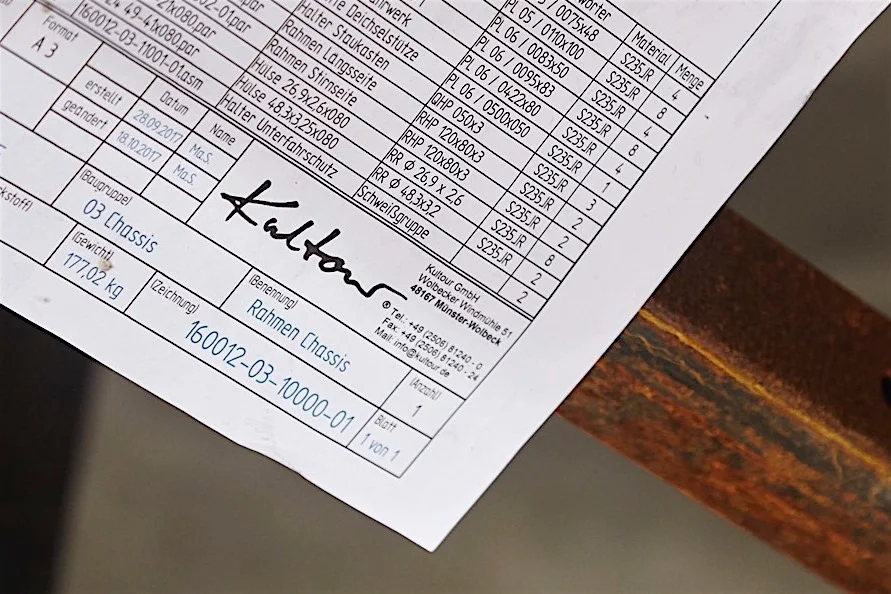 Material
Menge
PL 05 / 0075x48
S235JR
4
PL 05 / 0110x100
S235JR
8
PL 06 / 0083x50
S235JR
4
PL 06 / 0095x83
S235JR
8
PL 06 / 0422x80
S235JR
4
Deichselstütze
PL 06 / 0500x050
S235JR
1
Halter Staukasten
RHP 050x3
S235JR
3
Rahmen Längsseite
RHP 120x80x3
S235JR
2
Rahmen Stirnseite
RHP 120x80x3
S235JR
2
Hülse 26.9x26x080
RR Φ 26.9 x 2.6
S235JR
8
Hülse 48.3x3.25x080
RR Φ 48.3x3.2
S235JR
2
Halter Unterfahrschutz
Schweißgruppe
2
160012-03-11001-01.asm
Format
A 3
Datum
Name
erstellt
28.09.2017
Ma.S.
geändert
18.10.2017
Ma.S.
Kultour ®
Kultour GmbH
Wolbecker Windmühle 51
48167 Münster-Wolbeck
Tel.: +49 (2506) 81240 - 0
Fax: +49 (2506) 81240 - 24
Mail: info@kultour.de
(Baugruppe)
03 Chassis
(Gewicht)
177.02 kg
(Benennung)
Rahmen Chassis
(Zeichnung)
160012-03-10000-01
(Anzahl)
1
Blatt
1 von 1